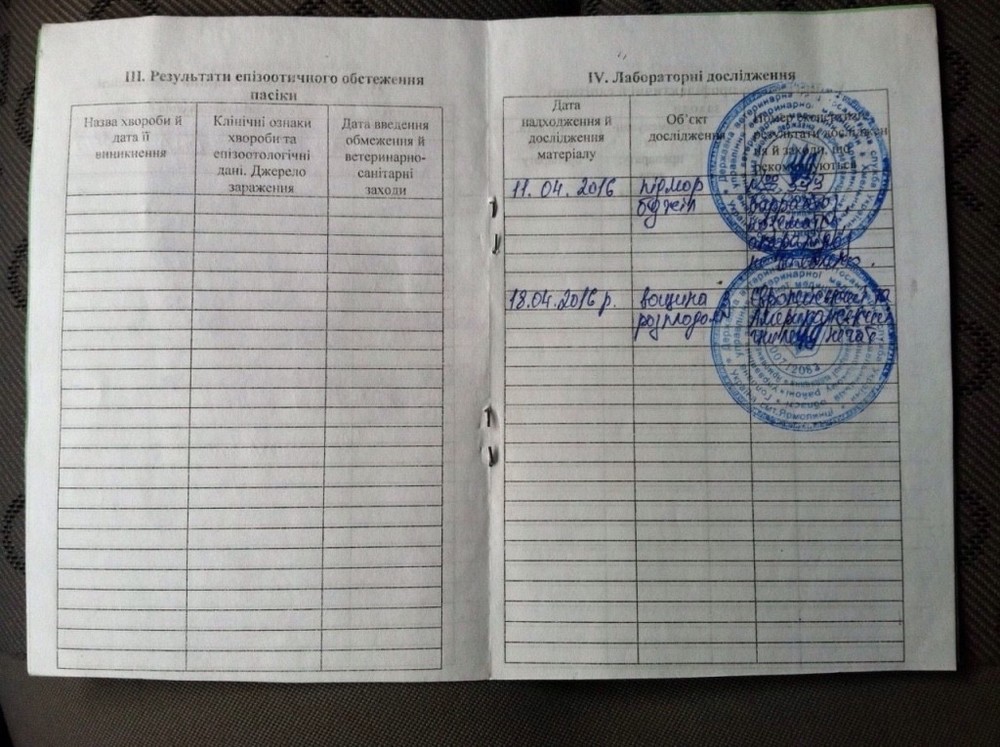 III. Результати епізоотичного обстеження
пасіки
Назва хвороби й
дата її
виникнення
Клінічні ознаки
хвороби та
епізоотологічні
дані. Джерело
зараження
Дата введення
обмеження й
ветеринарно-
санітарні
заходи
IV. Лабораторні дослідження
Дата
надходження й
дослідження
матеріалу
Об'єкт
дослідження
11. 04. 2016
підмор
бджіл
18.04.2016 р.
вощина
розплодом
Європейський та
Американський
гнилець
смт.Ярмолинці